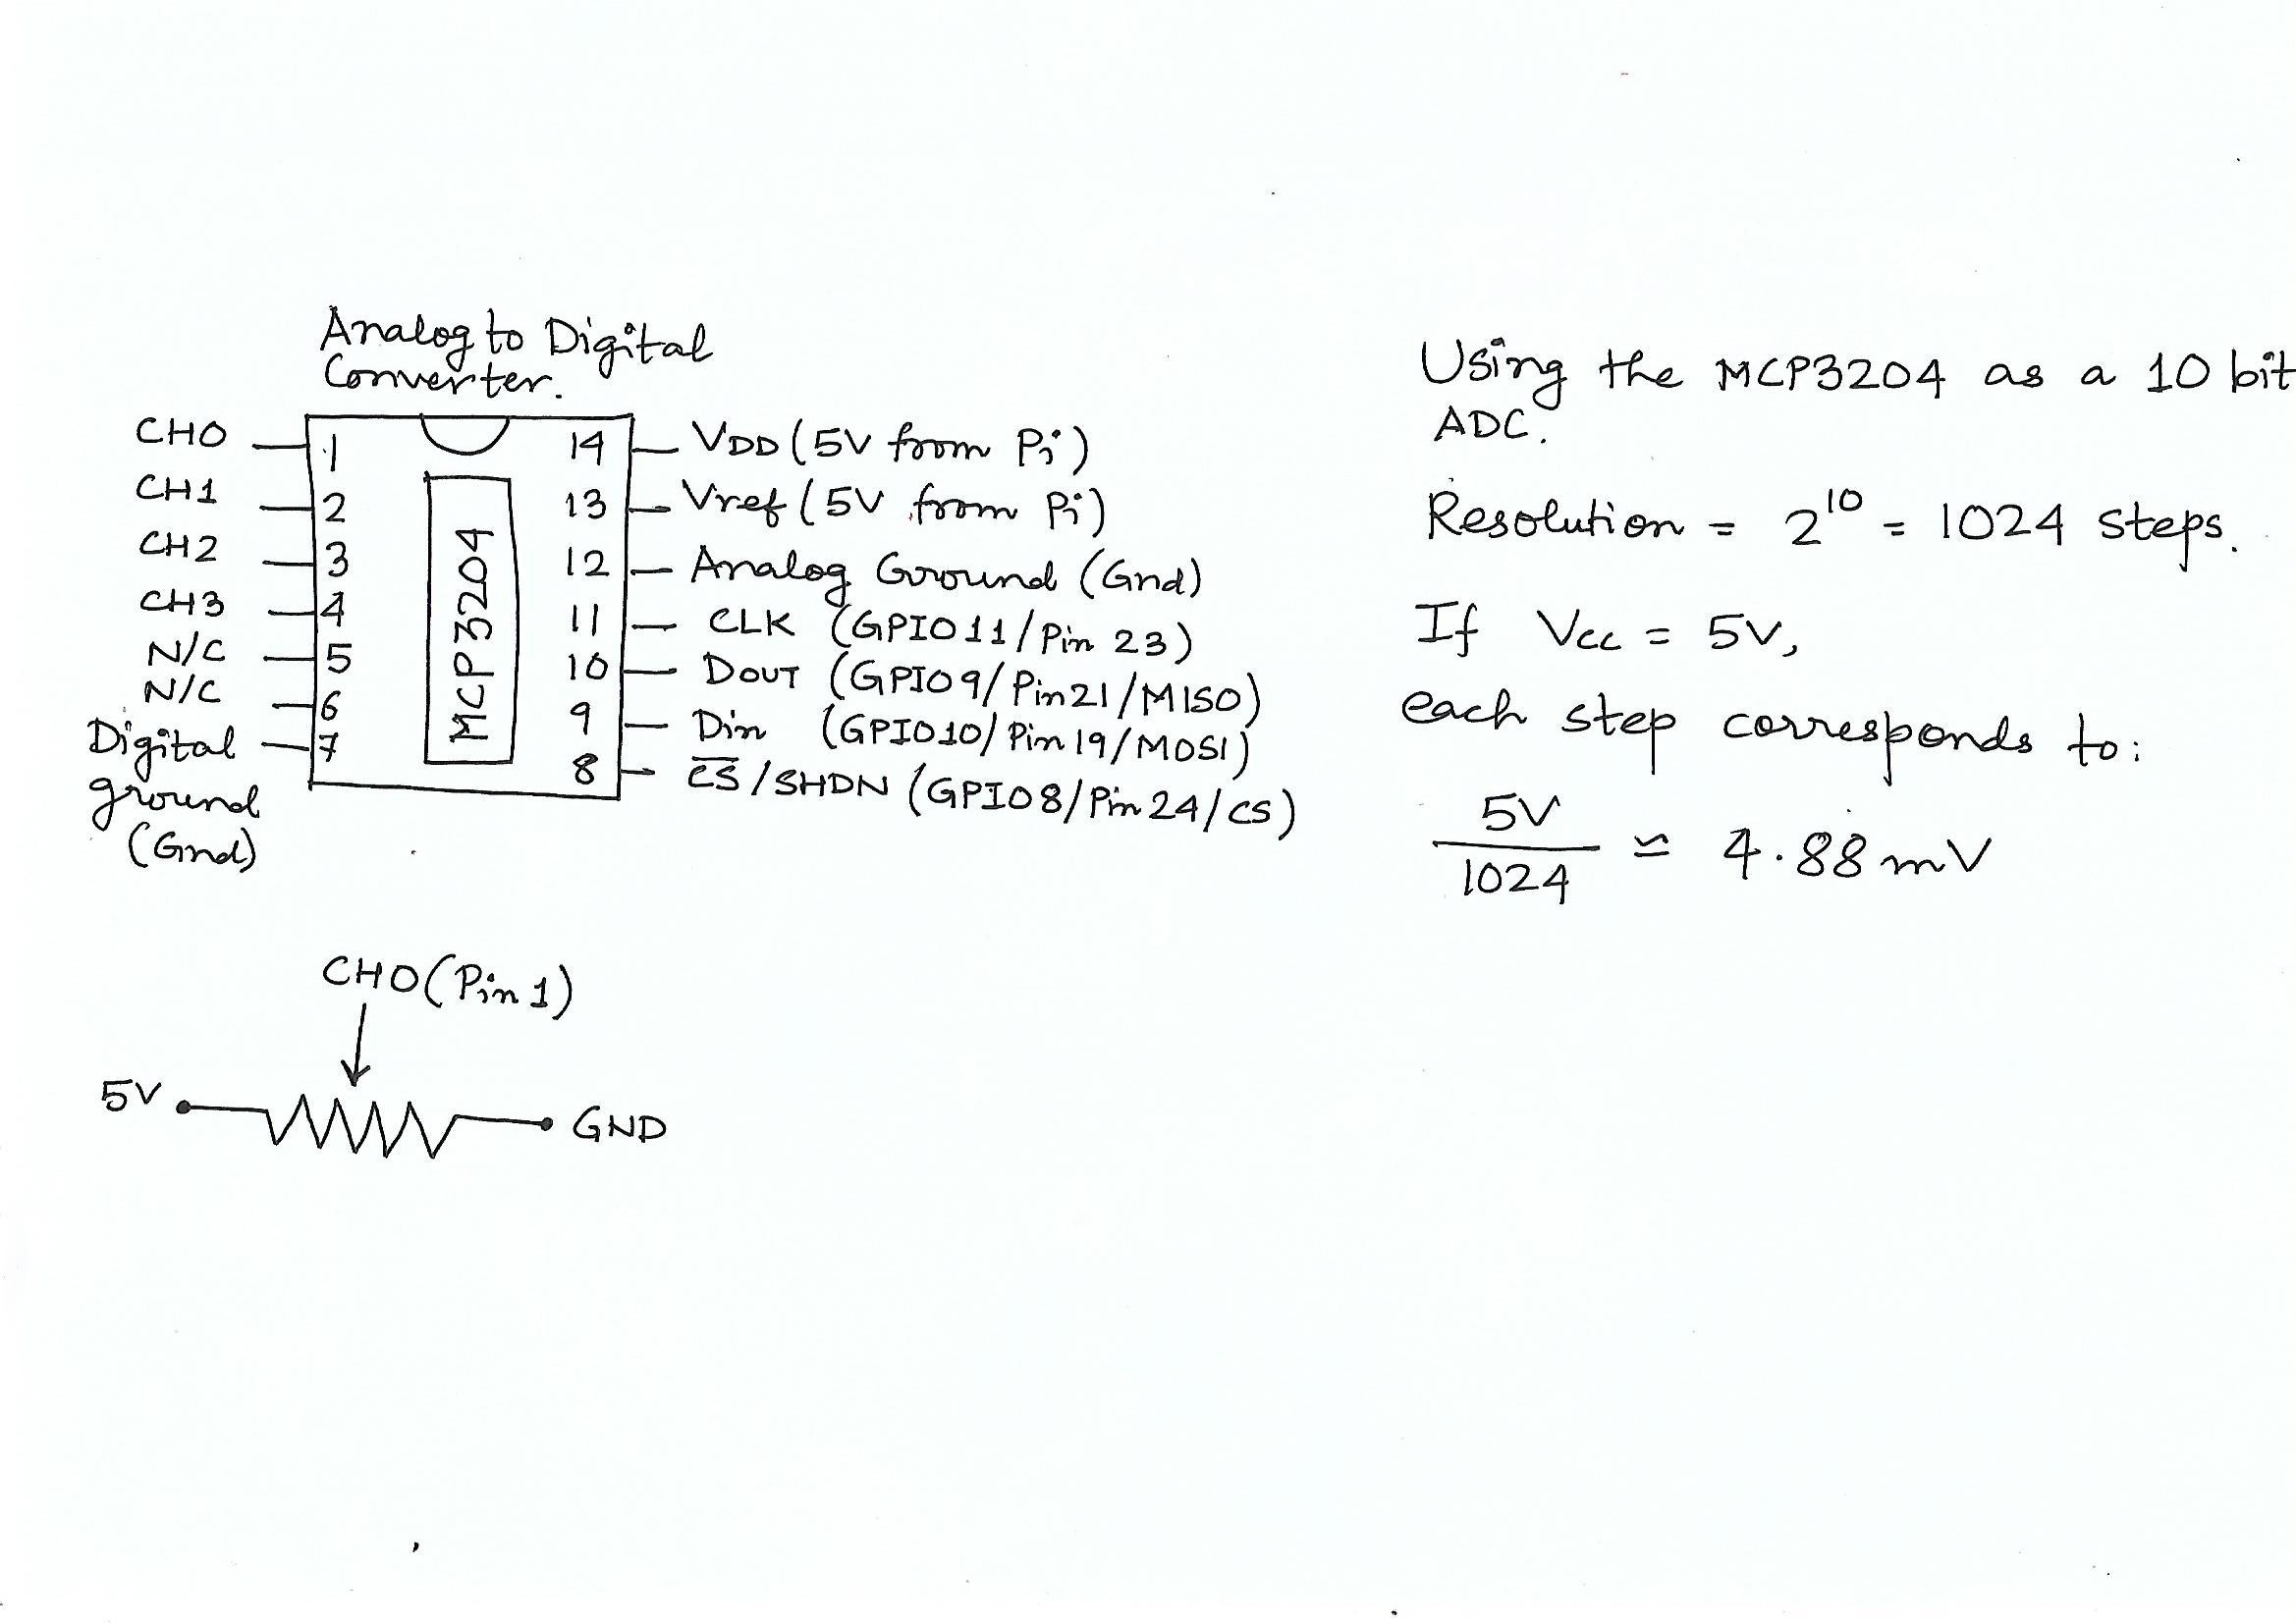 Analog to Digital
Converter.
CH0
CH1
CH2
CH3
N/C
N/C
Digital
ground
(Gnd)
1
2
3
4
5
6
7
MCP3204
14
13
12
11
10
9
8
VDD (5V from Pi)
Vref (5V from Pi)
Analog Ground (Gnd)
CLK (GPIO11/Pin 23)
DOUT (GPIO9/Pin21/MISO)
Din (GPIO10/Pin19/MOSI)
C̅S̅/SHDN (GPIO8/Pin24/CS)
CH0(Pin1)
5V
GND
Using the MCP3204 as a 10 bit
ADC.
Resolution = 2¹⁰ = 1024 steps.
If Vcc = 5V,
each step corresponds to:
5V
1024
≃ 4.88mV